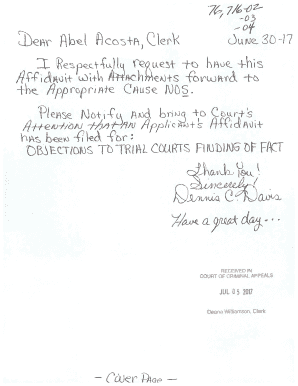 76,716-02
-03
-04
Dear Abel Acosta, Clerk June 30-17
I Respectfully request to have this
Affidavit with Attachments forward to
the Appropriate Cause NOS.
Please Notify and bring to Court's
Attention that an Applicant's Affidavit
has been filed for:
OBJECTIONS TO TRIAL COURTS FINDING OF FACT
Thank You!
Sincerely!
Dennis C. Davis
Have a great day...
RECEIVED IN
COURT OF CRIMINAL APPEALS
JUL 05 2017
Deana Williamson, Clerk
- Cover Page -